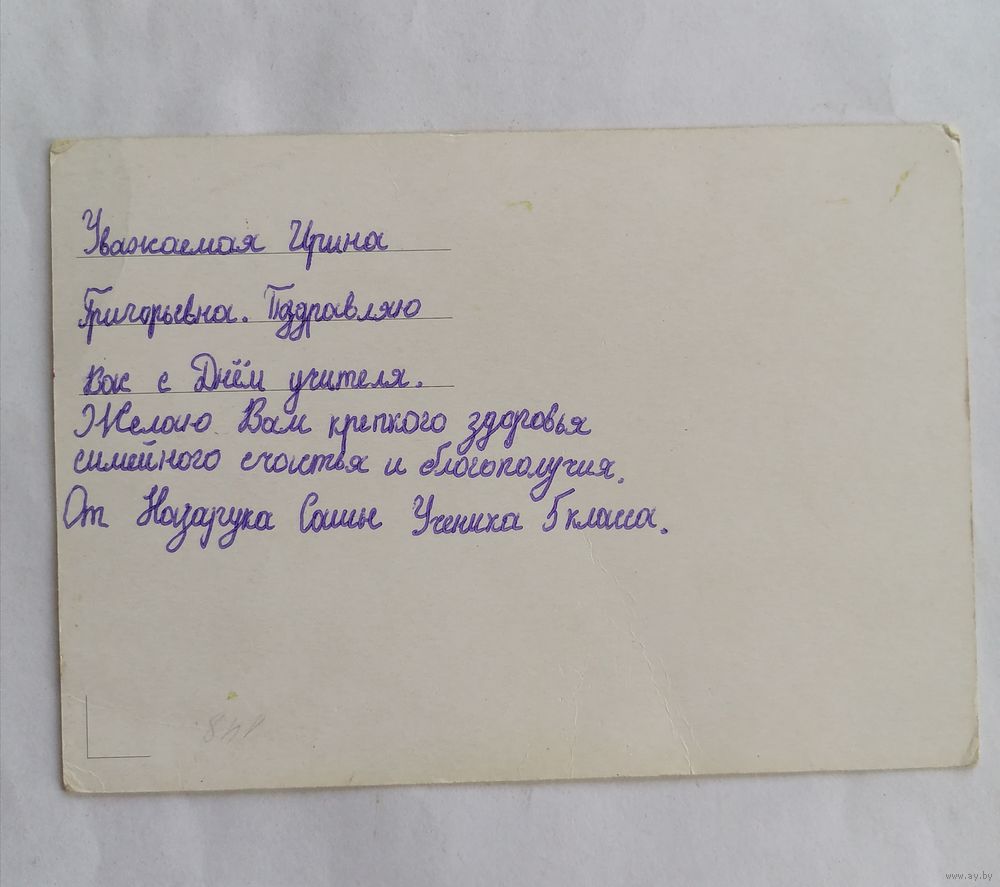 Уважаемая Ирина
Григорьевна. Пздравляю
Вас с Днём учителя.
Желаю Вам крепкого здоровья
симейного счастья и благополучия.
От Назарука Саши Ученика 5 класса.
www.ay.by